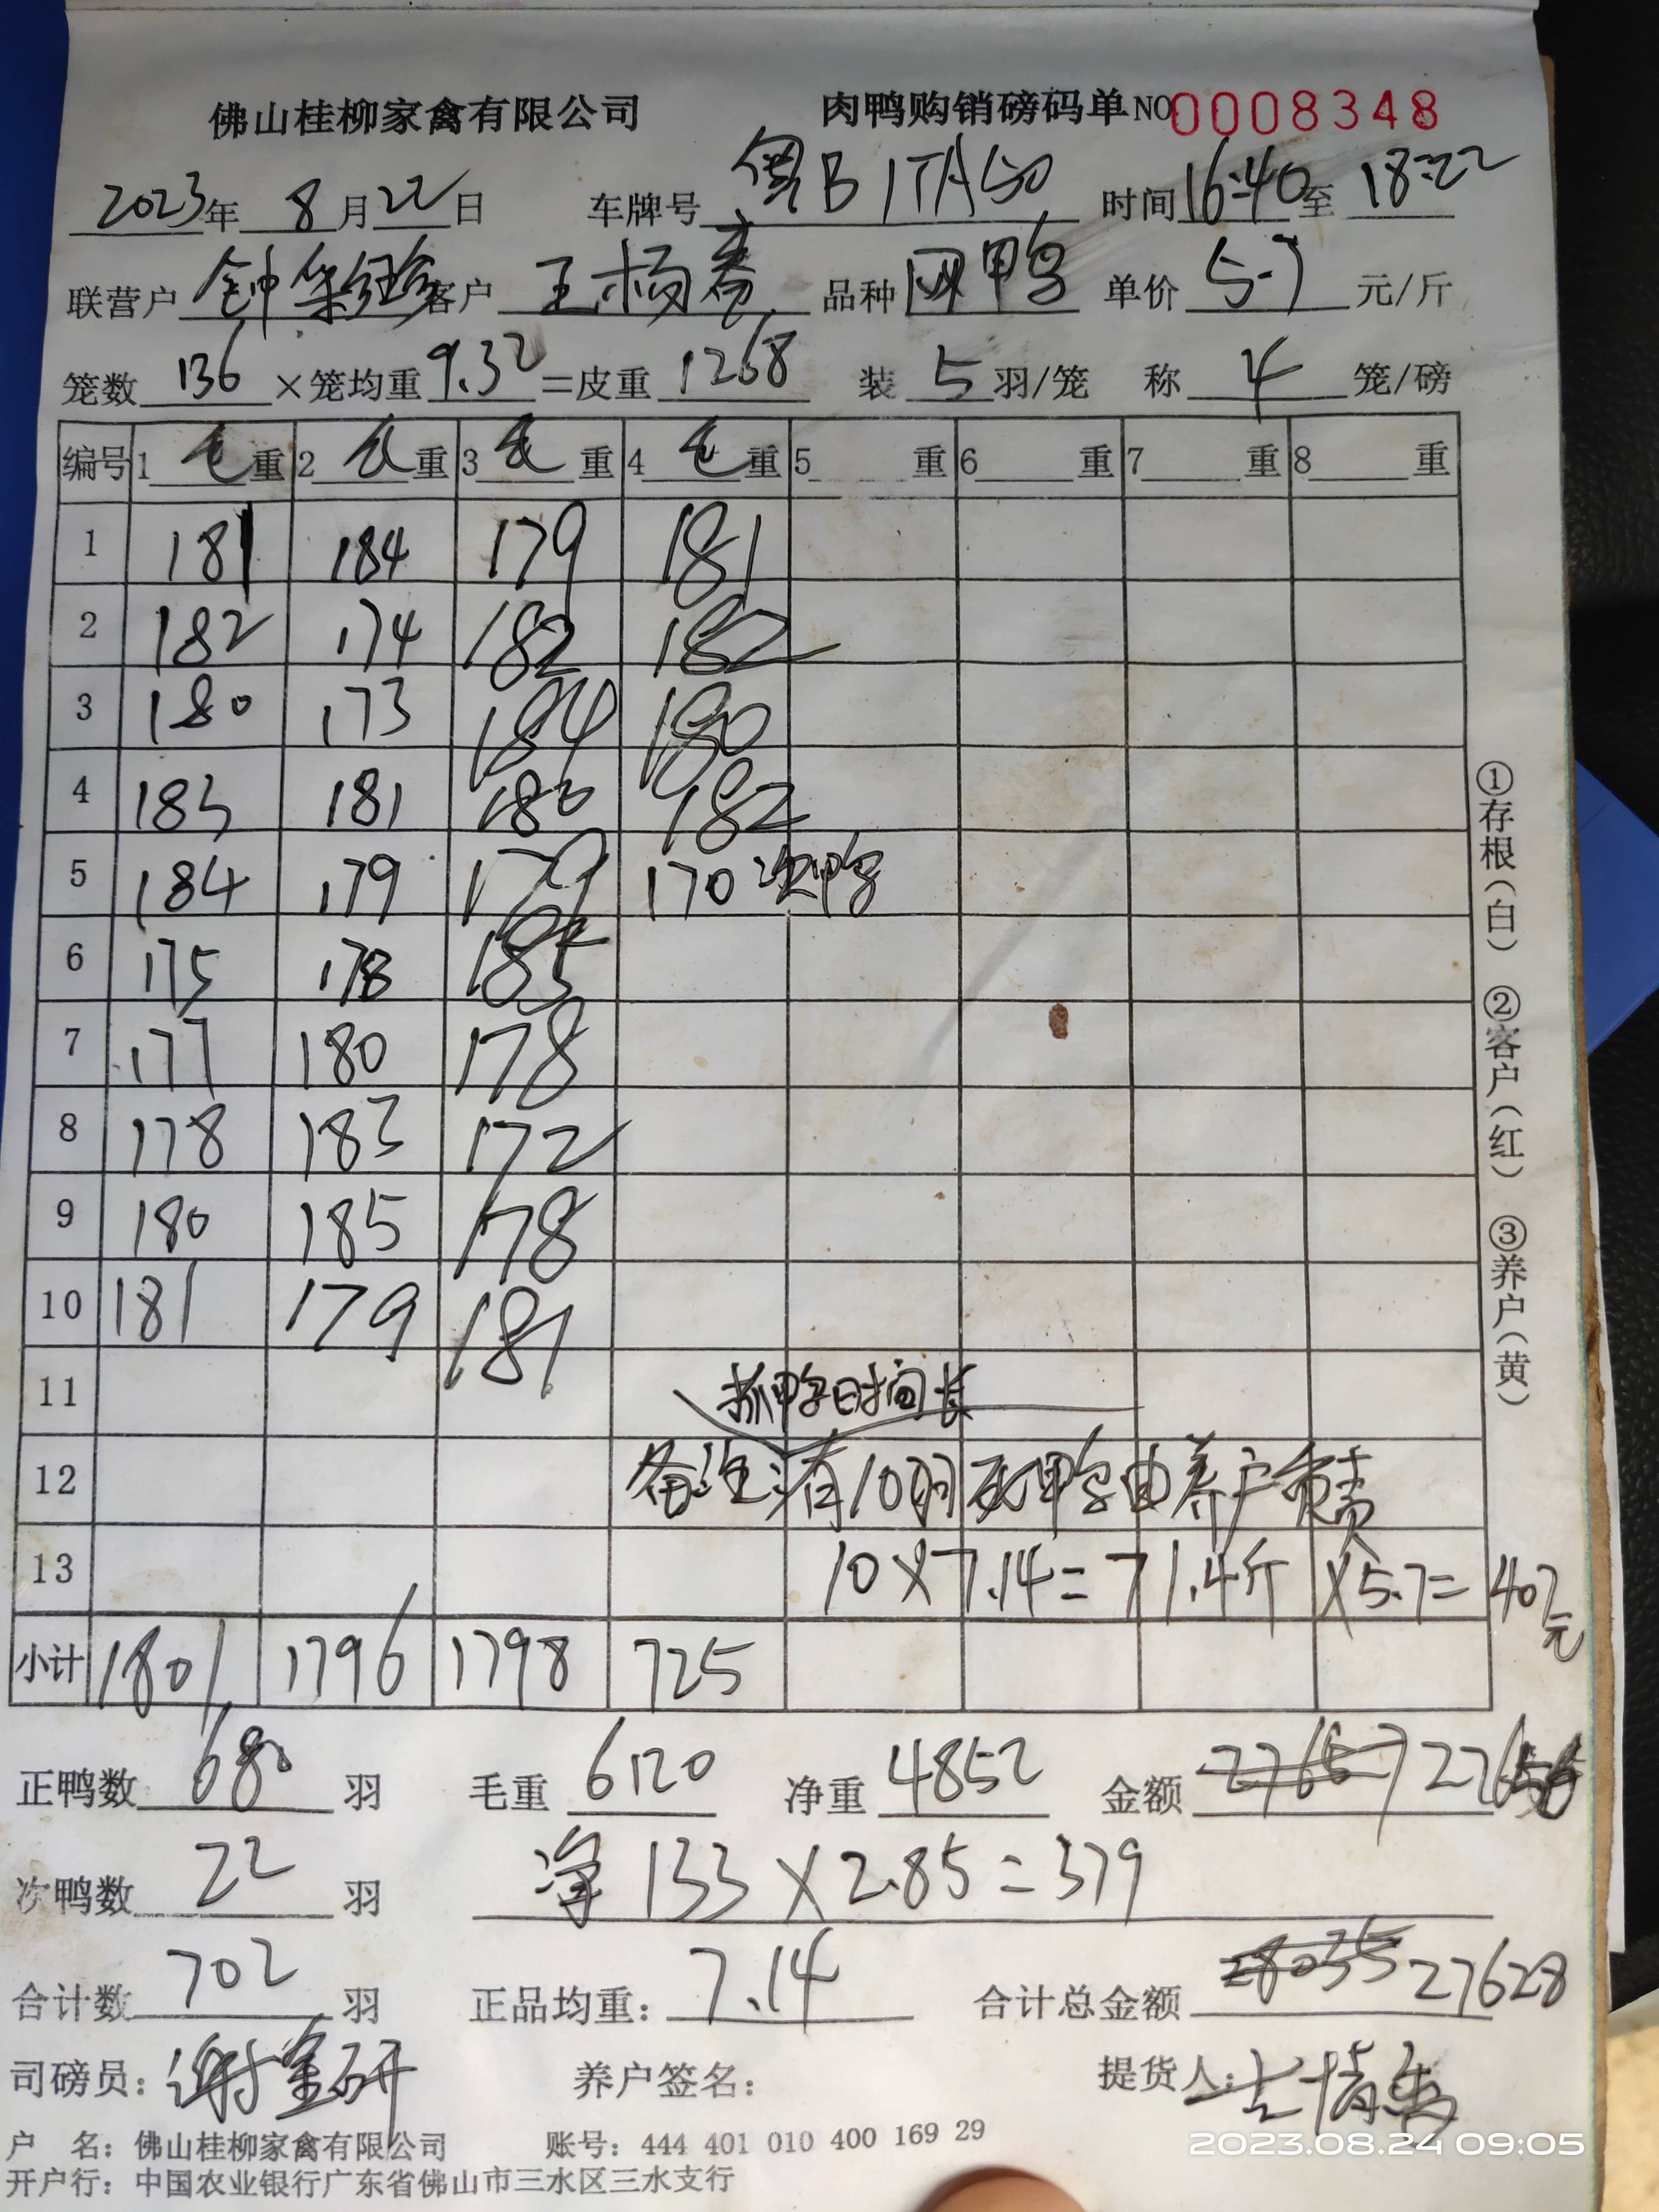 佛山桂柳家禽有限公司 肉鸭购销磅码单 NO 0008348
2023年 8月22日 车牌号 粤B 1TA50 时间 16:40 至 18:22
联营户 钟 客户 王杨 品种 网鸭 单价 5.7 元/斤
笼数 136 ×笼均重 9.32 =皮重 1268 装 5 羽/笼 称 4 笼/磅
编号 1 毛 重 2 毛 重 3 毛 重 4 毛 重 5 重 6 重 7 重 8 重
1 181 184 179 181
2 182 174 182 182
3 180 173 184 180
4 183 181 180 182
5 184 179 179 170 次鸭
6 175 178 185
7 177 180 178
8 178 183 172
9 180 185 178
10 181 179 181
11 抓鸭时间长
12 备注:有10羽死鸭由养户负责
13 10×7.14=71.4斤 ×5.7=407元
小计 1801 1796 1798 725
正鸭数 680 羽 毛重 6120 净重 4852 金额 27657 27656
次鸭数 22 羽 净 133×2.85=379
合计数 702 羽 正品均重: 7.14 合计总金额 28035 27628
司磅员: 谢 研 养户签名: 提货人:
户 名: 佛山桂柳家禽有限公司 账号: 444 401 010 400 169 29
开户行: 中国农业银行广东省佛山市三水区三水支行
①存根(白) ②客户(红) ③养户(黄)
2023.08.24 09:05